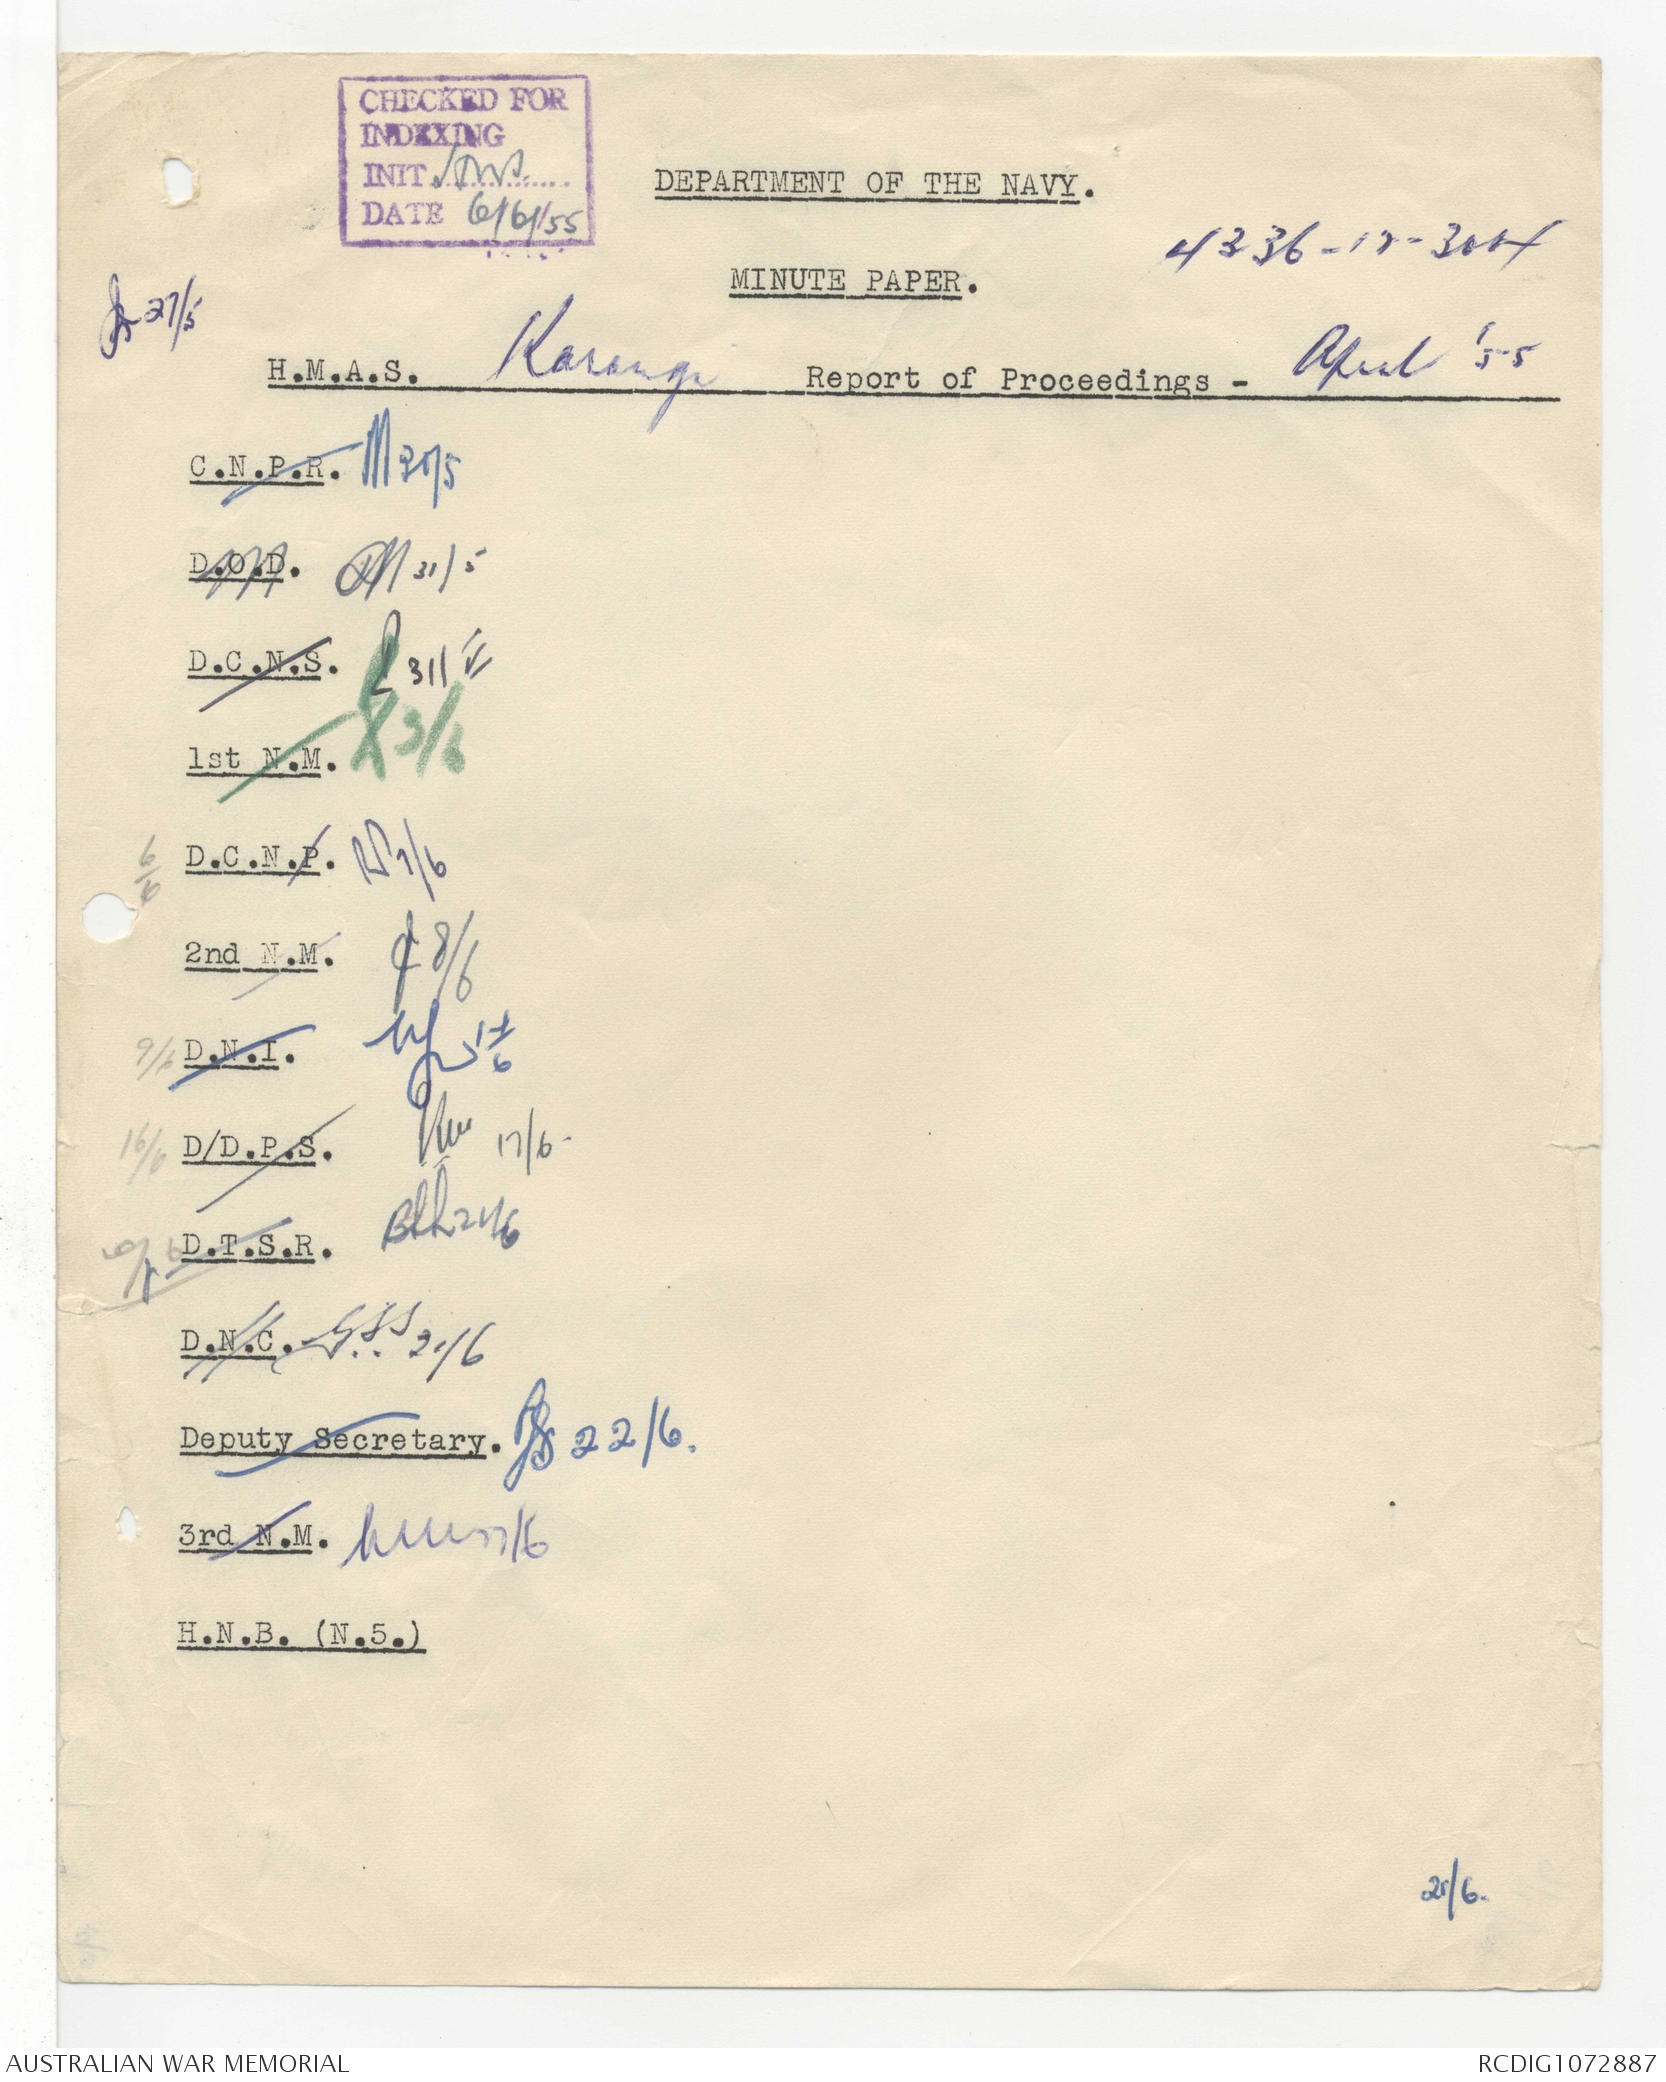 CHECKED FOR
INDEXING
INIT
DATE 6/6/55
DEPARTMENT OF THE NAVY.
MINUTE PAPER.
27/5
H.M.A.S. Karangi Report of Proceedings - April '55
C.N.P.R. 30/5
D.O.D. 31/5
D.C.N.S. 31/5
1st N.M. 3/6
6/6 D.C.N.P. 7/6
2nd N.M. 8/6
9/6 D.N.I.
16/6 D/D.P.S. 17/6
D.T.S.R. 21/6
D.N.C. 21/6
Deputy Secretary. 22/6.
3rd N.M.
H.N.B. (N.5.)
21/6.
AUSTRALIAN WAR MEMORIAL
RCDIG1072887